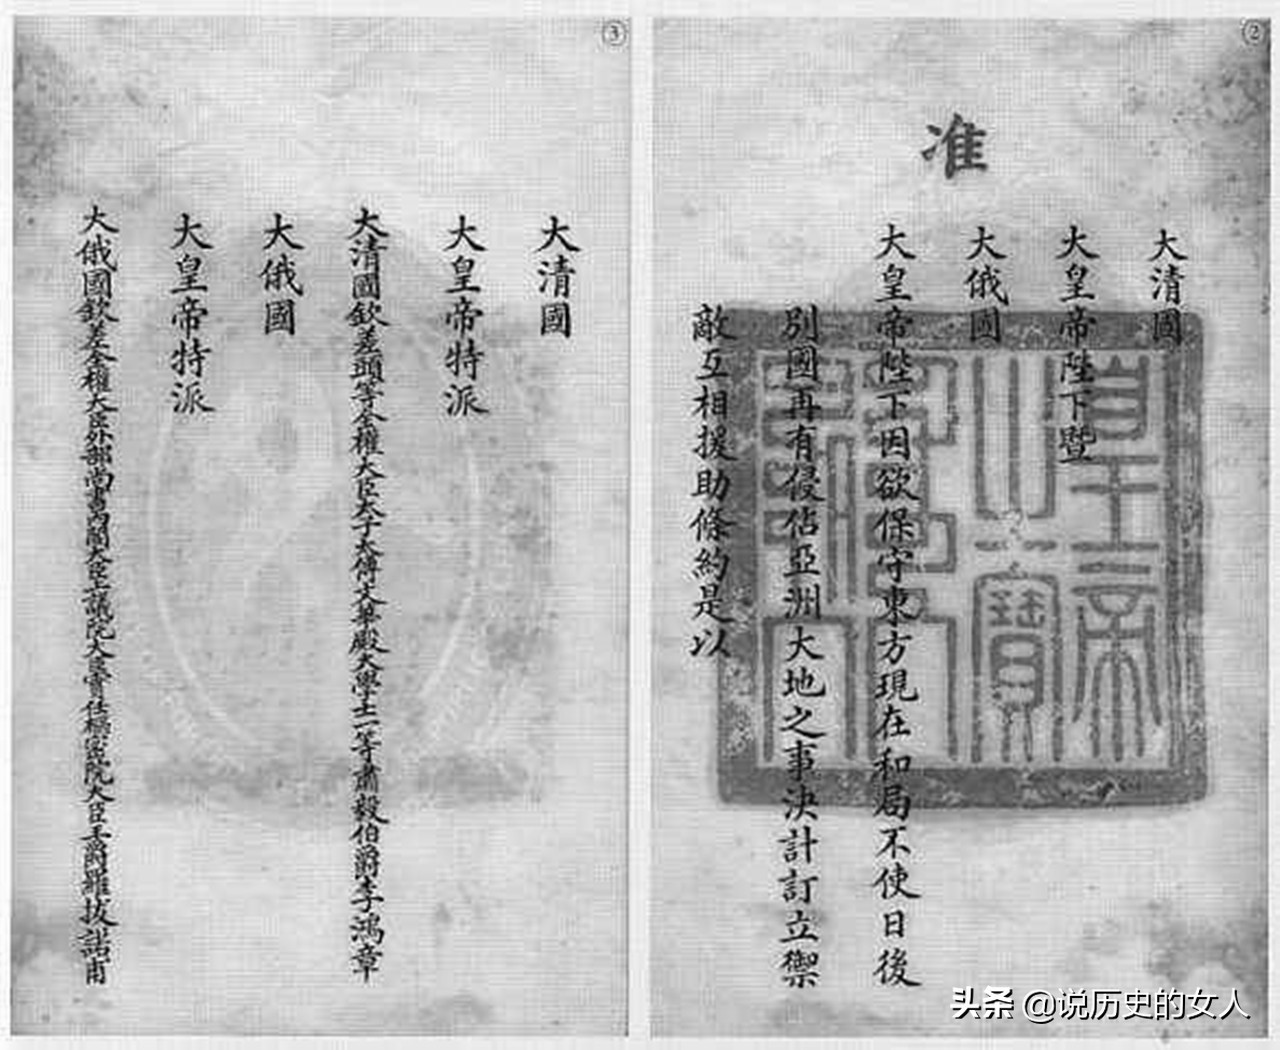 ②
准
大清國
大皇帝陛下暨
大俄國
大皇帝陛下因欲保守東方現在和局不使日後
別國再有侵佔亞洲大地之事決計訂立禦
敵互相援助條約是以
皇帝
之寶
③
大清國
大皇帝特派
大清國欽差頭等全權大臣太子太傅文華殿大學士一等肅毅伯爵李鴻章
大俄國
大皇帝特派
大俄國欽差全權大臣外部尚書內閣大臣上議院大臣實任樞密院大臣王爵羅拔諾甫
头条 @说历史的女人